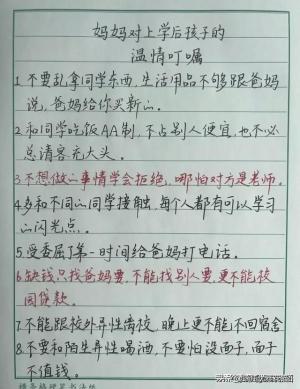 妈妈对上学后孩子的
温情叮嘱
1.不要乱拿同学东西,生活用品不够跟爸妈
说,爸妈给你买新的。
2.和同学吃饭AA制,不占别人便宜,也不必
总请客充大头。
3.不想做的事情学会拒绝,哪怕对方是老师。
4.多和不同的同学接触,每个人都有可以学习
的闪光点。
5.受委屈了第一时间给爸妈打电话。
6.缺钱只找爸妈要,不能找别人要,更不能校
园贷款。
7.不能跟校外异性离校,晚上更不能不回宿舍
8.不要和陌生异性喝酒,不要怕没面子,面子
不值钱。